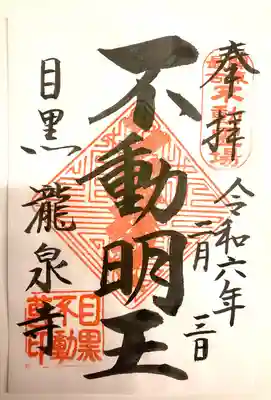 奉拝
令和六年
二月三日
不動明王
目黒瀧泉寺
目黒
不動